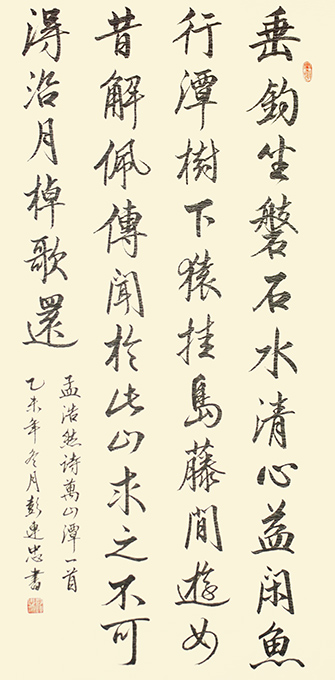 垂釣坐磐石水清心益闲魚
行潭樹下猿挂島藤間遊女
昔解佩傳聞於此山求之不可
得沿月棹歌還
孟浩然诗萬山潭一首
乙未年冬月彭速忠書